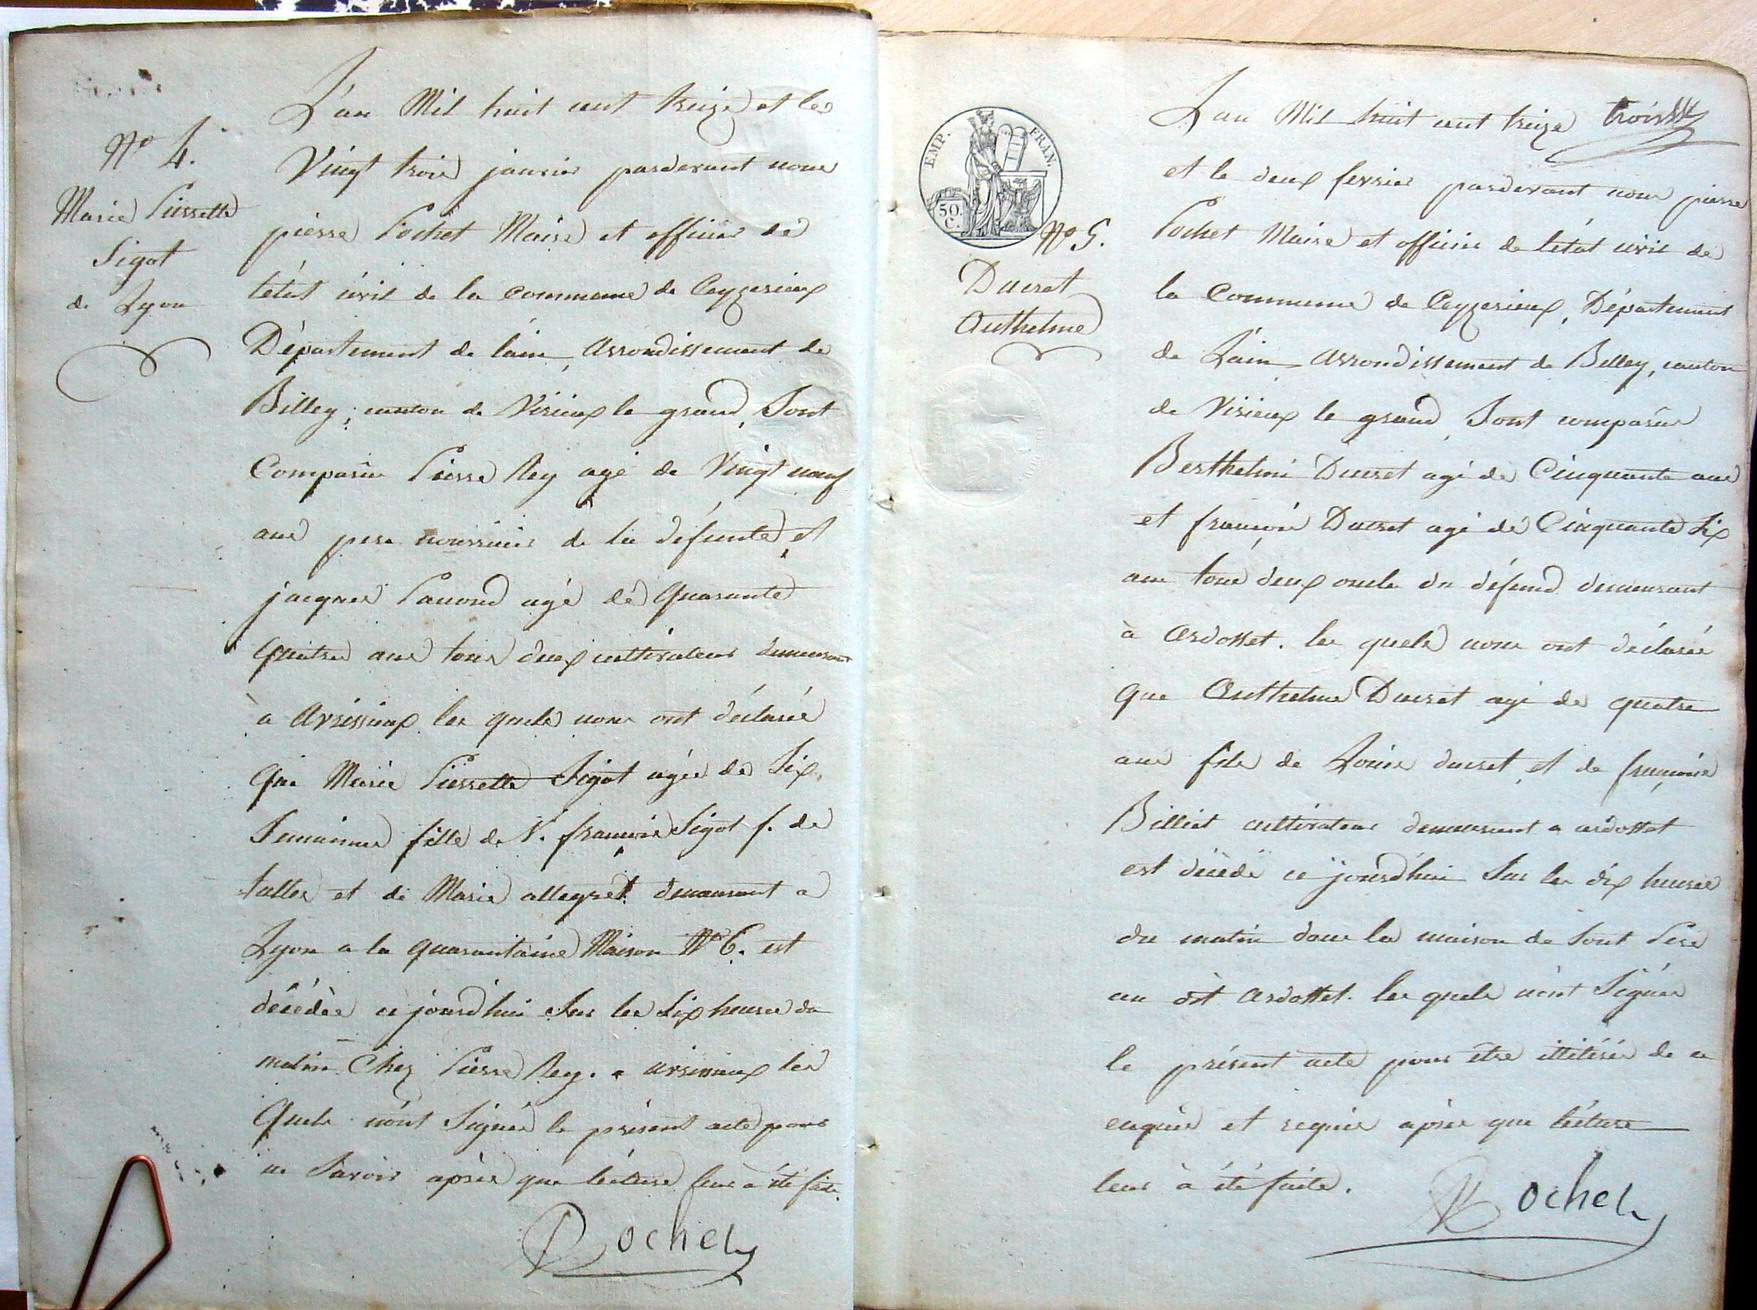 N° 4.
Marie Pierrette
Sigot
de Lyon
L'an Mil huit cent treize et le
Vingt trois janvier pardevant nous
pierre Pochet Maire et officier de
l'état civil de la commune de Ceyzerieux
Département de l'ain, arrondissement de
Billey, canton de Virieux le grand, Sont
Comparûs Pierre Rey agé de Vingt neuf
ans pere nourricier de la défunte, et
jacques agé de Quarante
Quatre ans tous deux cultivateurs demeurant
à avrissieux les quels nous ont déclarés
Que Marie Pierrette Sigot agée de Six
Semaines fille de N. françois Sigot f. de
tulles et de Marie allegret demeurant a
Lyon a la quarantaine Maison N° 6. est
décédée ce jourd'hui Sur les Six heures du
matin Chez Pierre Rey. a avrissieux les
Quels n'ont Signés le présent acte pour
ne Savoir après que lécture leur à été faite.
Pochet
EMP. FRAN.
50
C.
N° 5.
Ducret
Anthelme
L'an Mil huit cent treize trois
et le deux fevrier pardevant nous pierre
Pochet Maire et officier de l'état civil de
la Commune de Ceyzerieux, Département
de L'ain arrondissement de Belley, canton
de Virieux le grand, Sont comparûs
Berthelmi Ducret agé de Cinquante ans
et françois Ducret agé de Cinquante Six
ans tous deux oncle du défund demeurant
à ardosset. les quels nous ont déclarés
que Anthelme Ducret agé de quatre
ans fils de Louis ducret, et de françoise
Billiet cultivateur demeurant a ardosset
est décédé ce jourd'hui Sur les dix heures
du matin dans la maison de Sont Pere
au dit ardosset. les quels n'ont Signés
le présent acte pour être illitérés de ce
enquis et requis après que lécture
leur à été faite.
Pochet